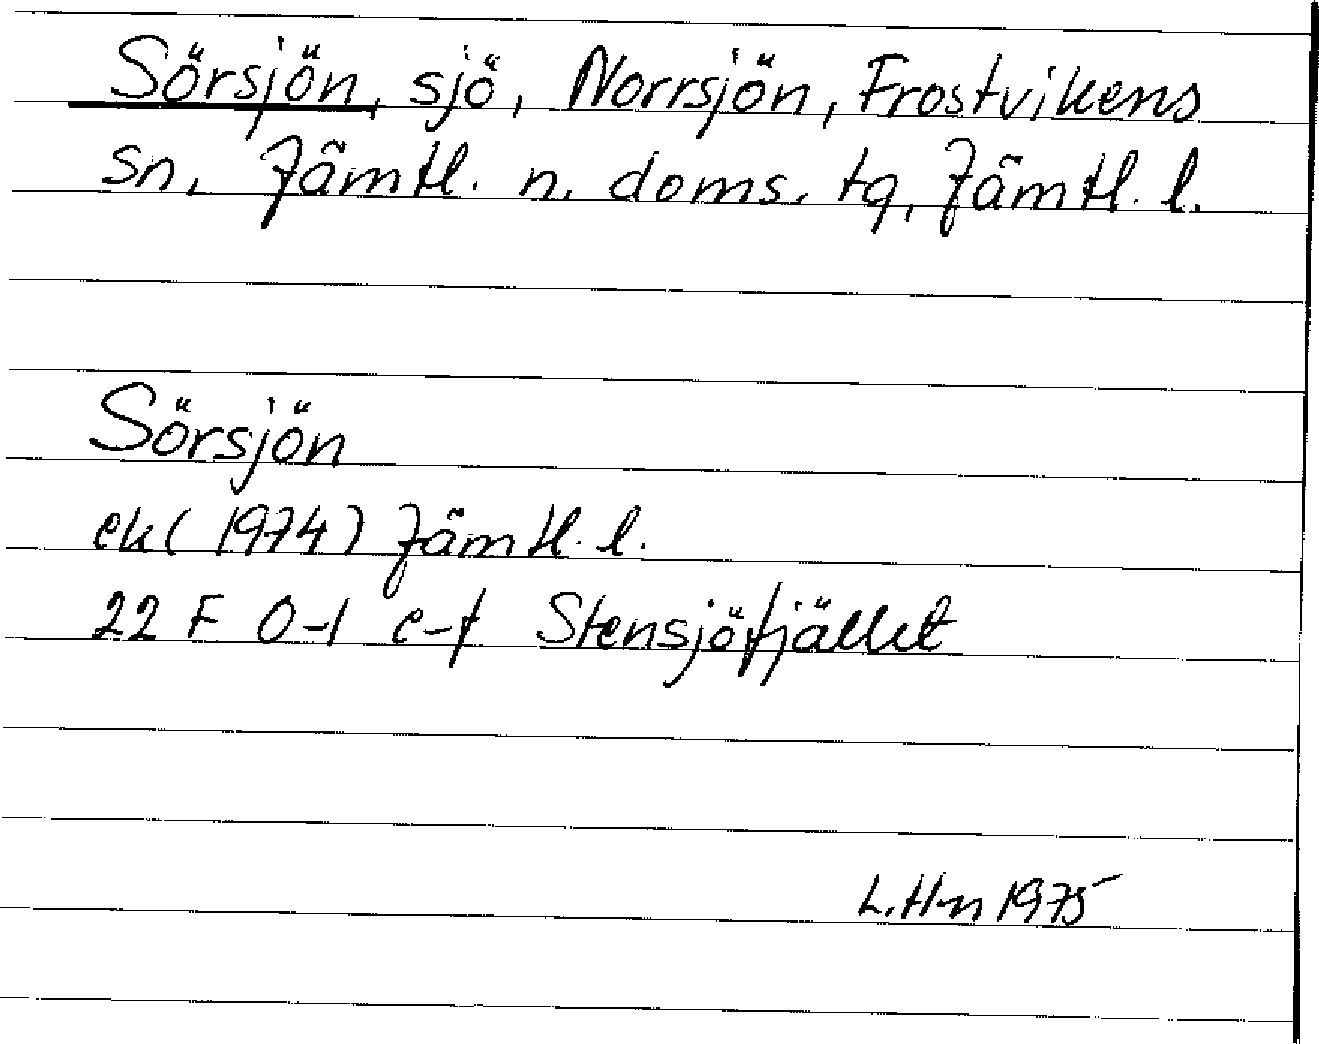 Sörsjön, sjö, Norrsjön, Frostvikens
sn, Jämtl. n. doms. tg, Jämtl. l.
Sörsjön
ek (1974) Jämtl. l.
22 F 0-1 e-f Stensjöfjället
L.H-n 1975